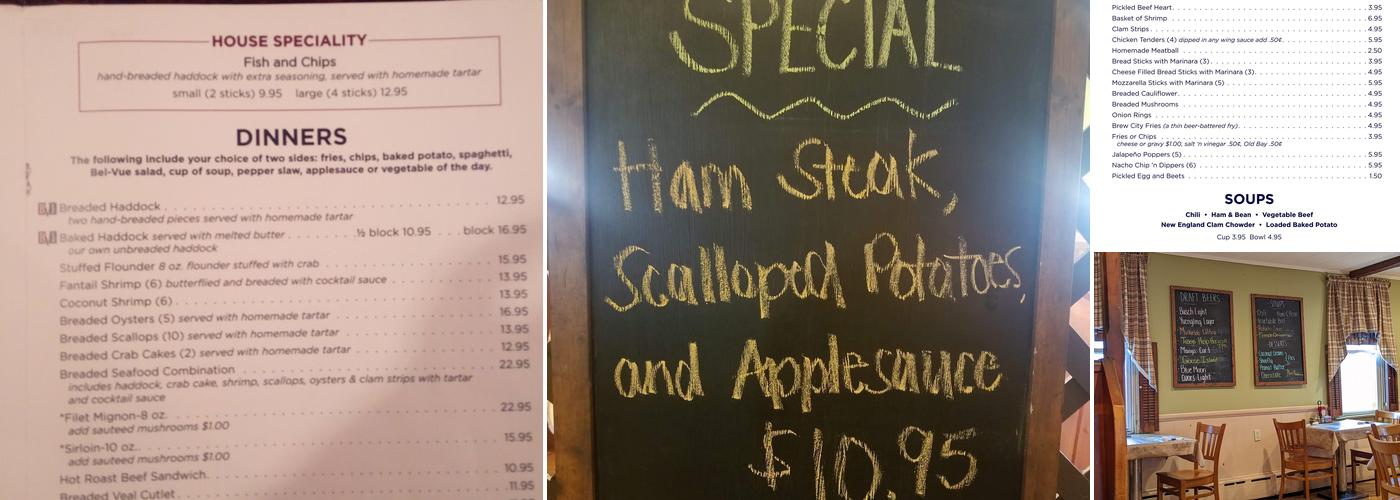 HOUSE SPECIALITY
Fish and Chips
hand-breaded haddock with extra seasoning, served with homemade tartar
small (2 sticks) 9.95 large (4 sticks) 12.95
DINNERS
The following include your choice of two sides: fries, chips, baked potato, spaghetti,
Bel-Vue salad, cup of soup, pepper slaw, applesauce or vegetable of the day.
Breaded Haddock . . . 12.95
two hand-breaded pieces served with homemade tartar
Baked Haddock served with melted butter . . . ½ block 10.95 . . . block 16.95
our own unbreaded haddock
Stuffed Flounder 8 oz. flounder stuffed with crab . . . 15.95
Fantail Shrimp (6) butterflied and breaded with cocktail sauce . . . 13.95
Coconut Shrimp (6) . . . 13.95
Breaded Oysters (5) served with homemade tartar . . . 16.95
Breaded Scallops (10) served with homemade tartar . . . 13.95
Breaded Crab Cakes (2) served with homemade tartar . . . 12.95
Breaded Seafood Combination . . . 22.95
includes haddock, crab cake, shrimp, scallops, oysters & clam strips with tartar
and cocktail sauce
*Filet Mignon-8 oz. . . . 22.95
add sauteed mushrooms $1.00
*Sirloin-10 oz. . . . 15.95
add sauteed mushrooms $1.00
Hot Roast Beef Sandwich . . . 10.95
Breaded Veal Cutlet . . . 11.95
SPECIAL
Ham Steak,
Scalloped Potatoes,
and Applesauce
$10.95
Pickled Beef Heart . . . 3.95
Basket of Shrimp . . . 6.95
Clam Strips . . . 4.95
Chicken Tenders (4) dipped in any wing sauce add .50¢ . . . 5.95
Homemade Meatball . . . 2.50
Bread Sticks with Marinara (3) . . . 3.95
Cheese Filled Bread Sticks with Marinara (3) . . . 4.95
Mozzarella Sticks with Marinara (5) . . . 5.95
Breaded Cauliflower . . . 4.95
Breaded Mushrooms . . . 4.95
Onion Rings . . . 4.95
Brew City Fries (a thin beer-battered fry) . . . 4.95
Fries or Chips . . . 3.95
cheese or gravy $1.00, salt 'n vinegar .50¢, Old Bay .50¢
Jalapeño Poppers (5) . . . 5.95
Nacho Chip 'n Dippers (6) . . . 5.95
Pickled Egg and Beets . . . 1.50
SOUPS
Chili • Ham & Bean • Vegetable Beef
New England Clam Chowder • Loaded Baked Potato
Cup 3.95 Bowl 4.95
DRAFT BEERS
Busch Light
Yuengling Lager
Blue Moon
Coors Light
SOUPS
DESSERTS
Coconut Cream
Peanut Butter
Chocolate